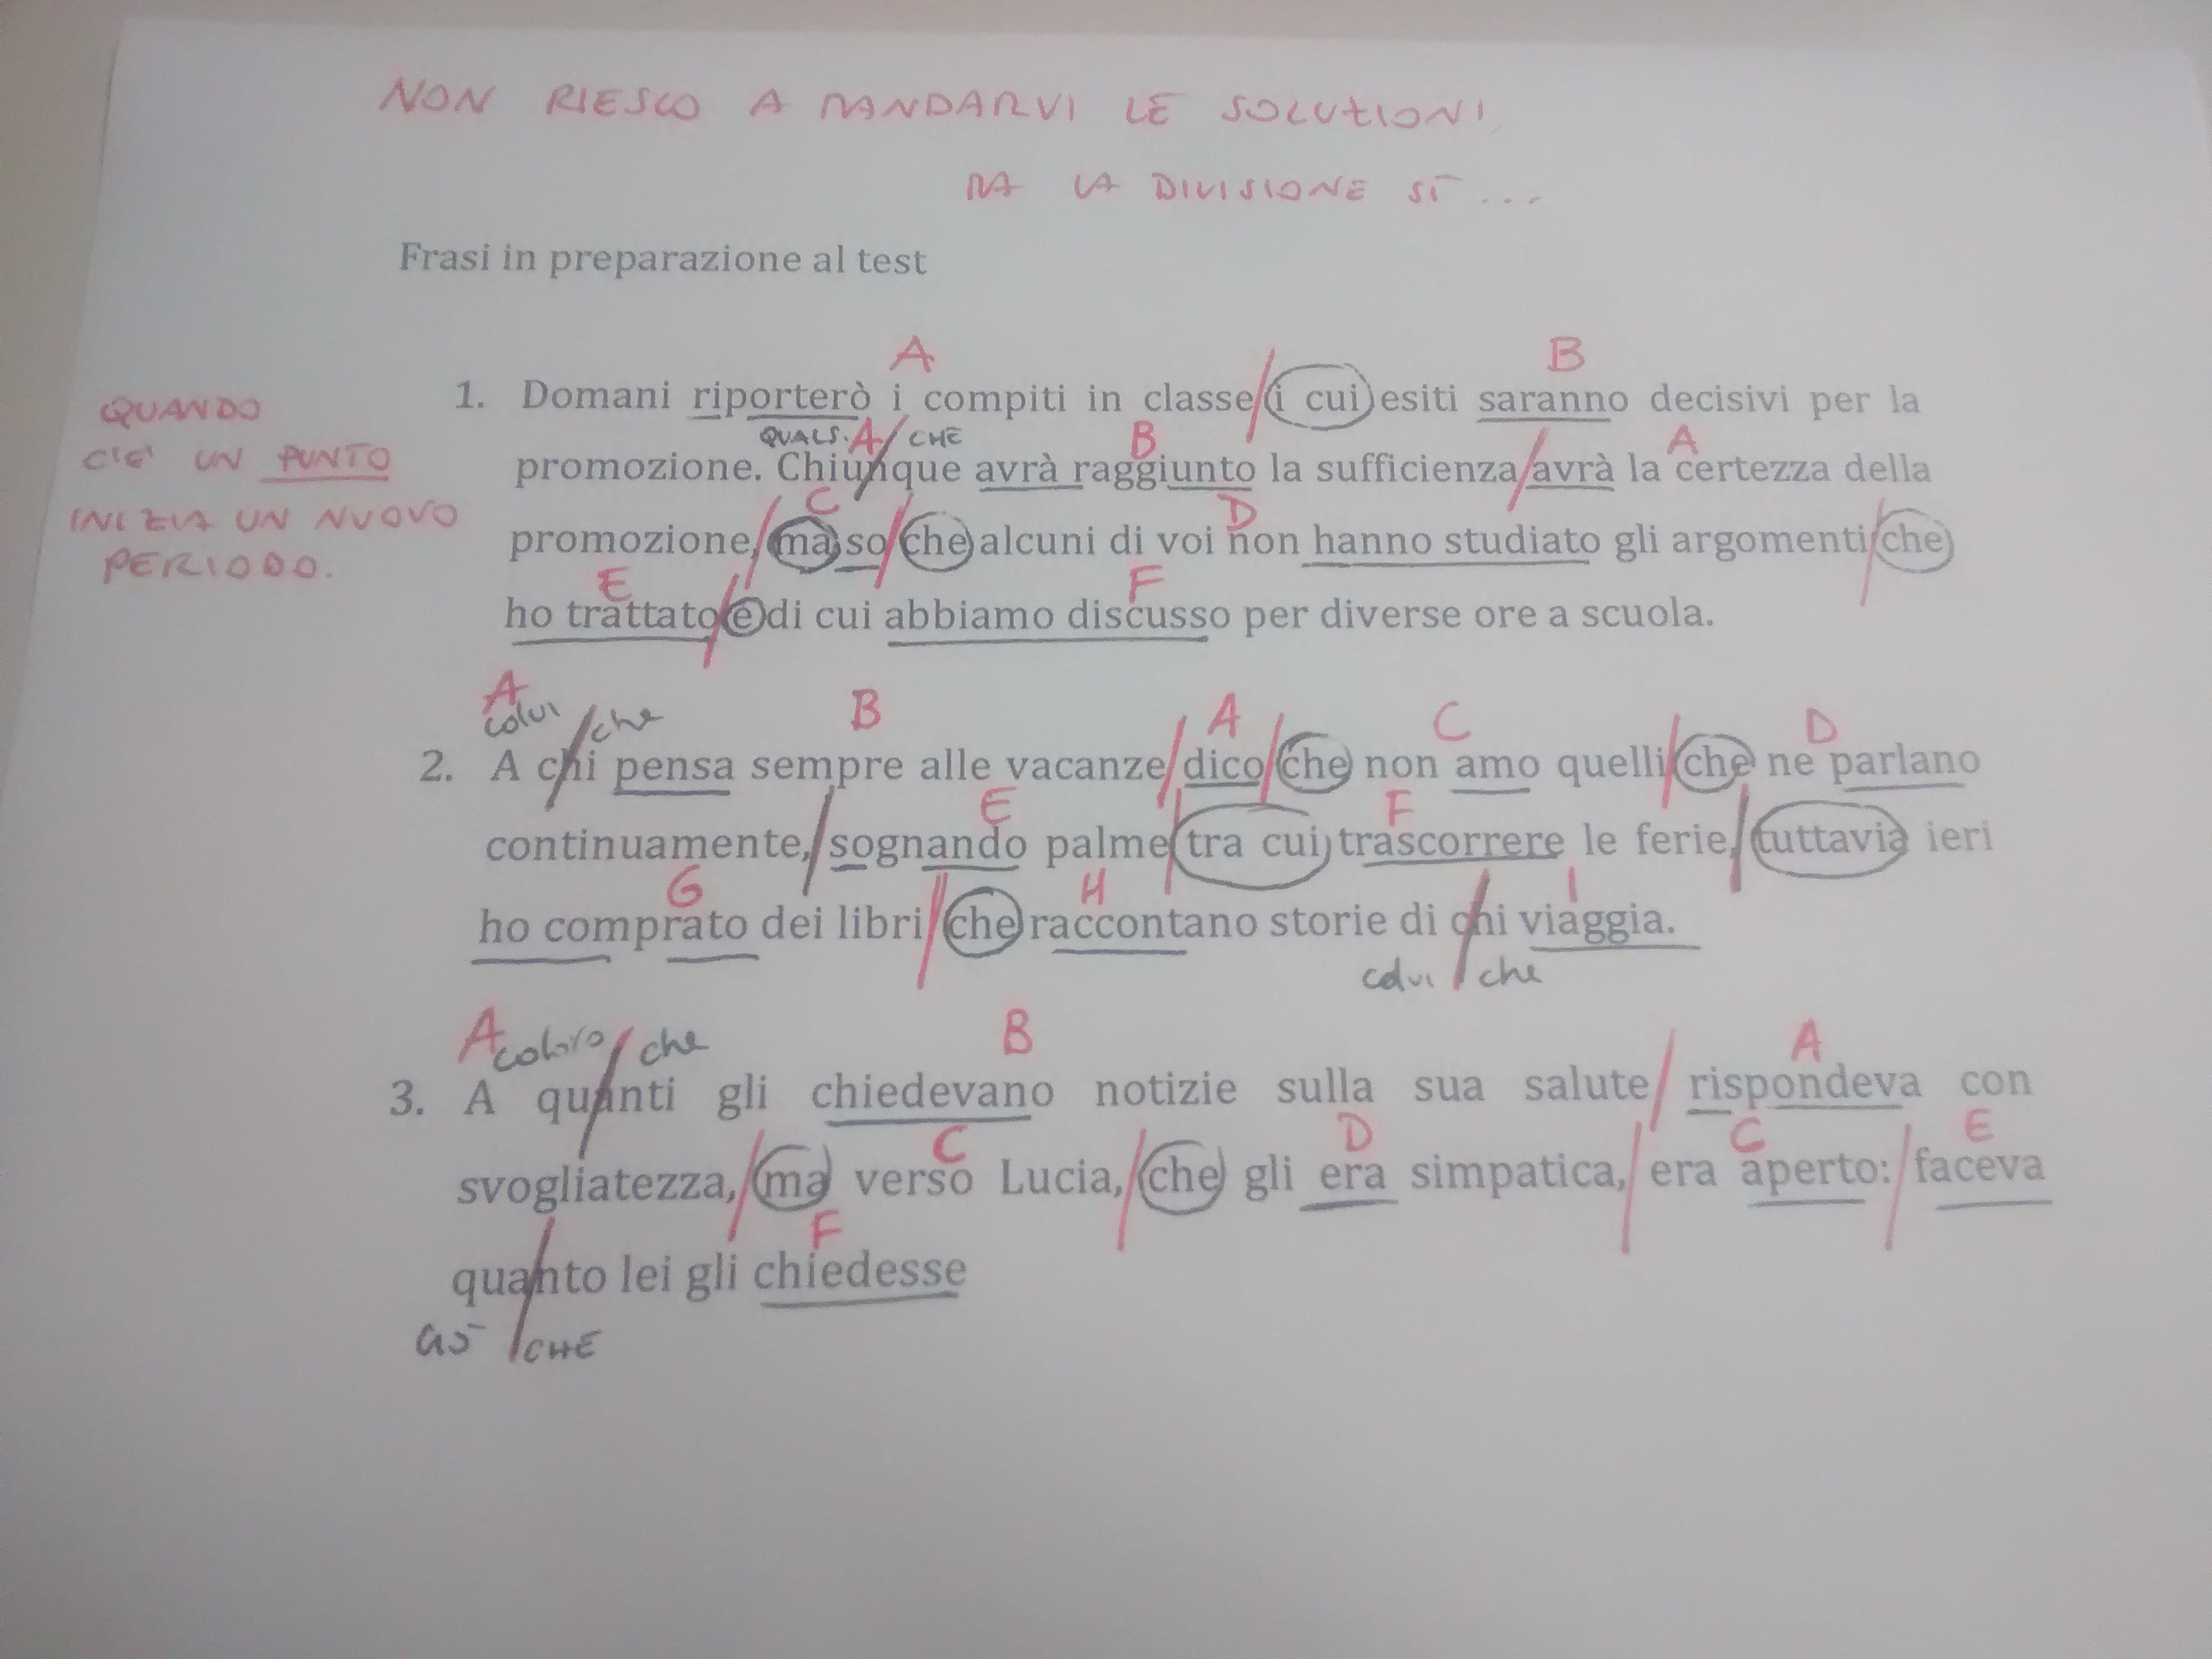 NON RIESCO A MANDARVI LE SOLUZIONI
MA LA DIVISIONE SÌ...
Frasi in preparazione al test
A B
1. Domani riporterò i compiti in classe/i cui esiti saranno decisivi per la
QUALS. A/CHE B A
promozione. Chiunque avrà raggiunto la sufficienza/avrà la certezza della
C D
promozione,/ma so/che alcuni di voi non hanno studiato gli argomenti/che
E F
ho trattato/e di cui abbiamo discusso per diverse ore a scuola.
QUANDO
C'E' UN PUNTO
INIZIA UN NUOVO
PERIODO.
A B A C D
colui/che
2. A chi pensa sempre alle vacanze/dico/che non amo quelli/che ne parlano
E F
continuamente,/sognando palme/tra cui trascorrere le ferie,/tuttavia ieri
G H I
ho comprato dei libri/che raccontano storie di chi viaggia.
colui/che
A coloro/che B A
3. A quanti gli chiedevano notizie sulla sua salute/rispondeva con
C D C E
svogliatezza,/ma verso Lucia,/che gli era simpatica,/era aperto:/faceva
F
quanto lei gli chiedesse
ciò/CHE